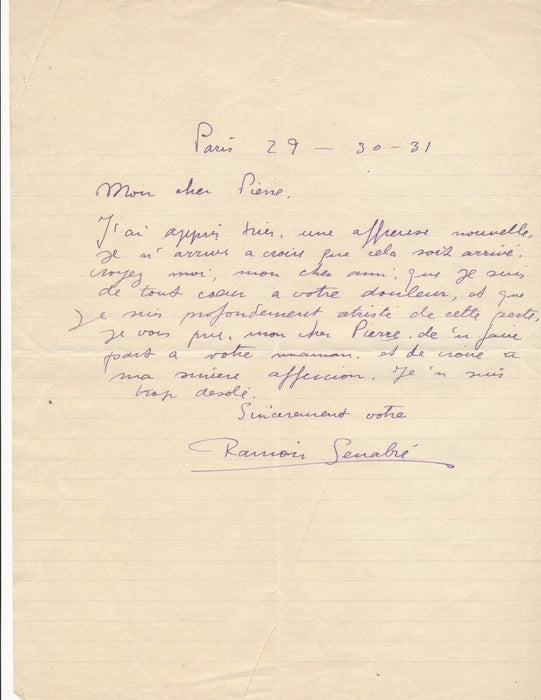 Paris 29 - 30 - 31
Mon cher Pierre.
J'ai appris hier, une affreuse nouvelle,
je n'arrive a croire que cela soit arrivé.
croyez moi, mon cher ami, que je suis
de tout coeur a votre douleur, et que
je suis profondement atristé de cette perte,
je vous prie, mon cher Pierre, de 'n faire
part a votre maman, et de croire a
ma sincere affeccion. Je 'n suis
trop desolé.
Sincerement votre
Ramon Senabré